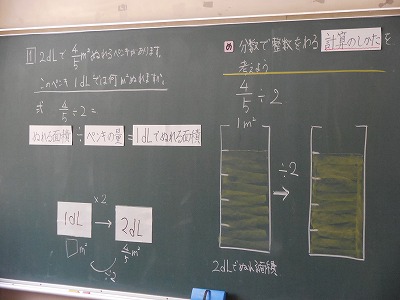 1 2dLで4/5m²ぬれるペンキがあります。
このペンキ1dLでは何m²ぬれますか。
式 4/5÷2=
ぬれる面積÷ペンキの量=1dLでぬれる面積
×2
1dL→2dL
□m² 4/5m²
÷2
め 分数で整数をわる計算のしかたを
考えよう
4/5÷2
1m²
÷2
→
2dLでぬれる面積